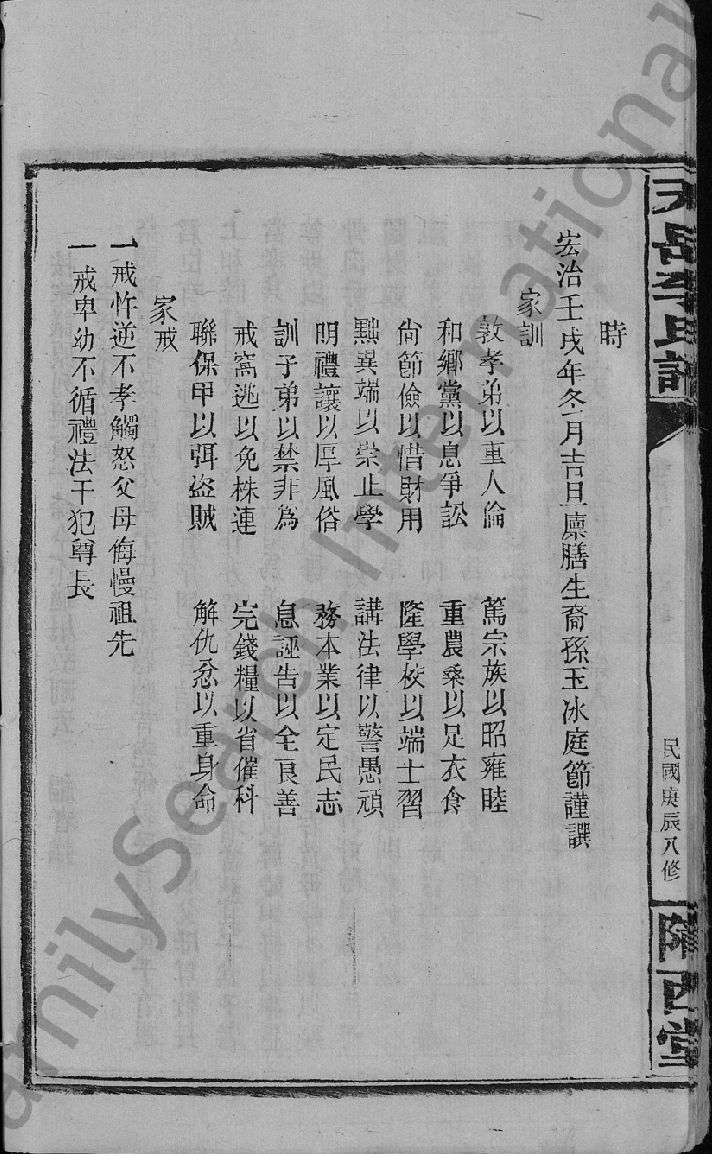 天岳李氏譜
民國庚辰八修
隴西堂
時
宏治壬戌年冬月吉旦廩膳生裔孫玉冰庭節謹譔
家訓
敦孝弟以重人倫 篤宗族以昭雍睦
和鄉黨以息爭訟 重農桑以足衣食
尙節儉以惜財用 隆學校以端士習
黜異端以崇正學 講法律以警愚頑
明禮讓以厚風俗 務本業以定民志
訓子弟以禁非為 息誣告以全良善
戒窩逃以免株連 完錢糧以省催科
聯保甲以弭盜賊 解仇忿以重身命
家戒
一戒忤逆不孝觸怒父母侮慢祖先
一戒卑幼不循禮法干犯尊長
FamilySearch International